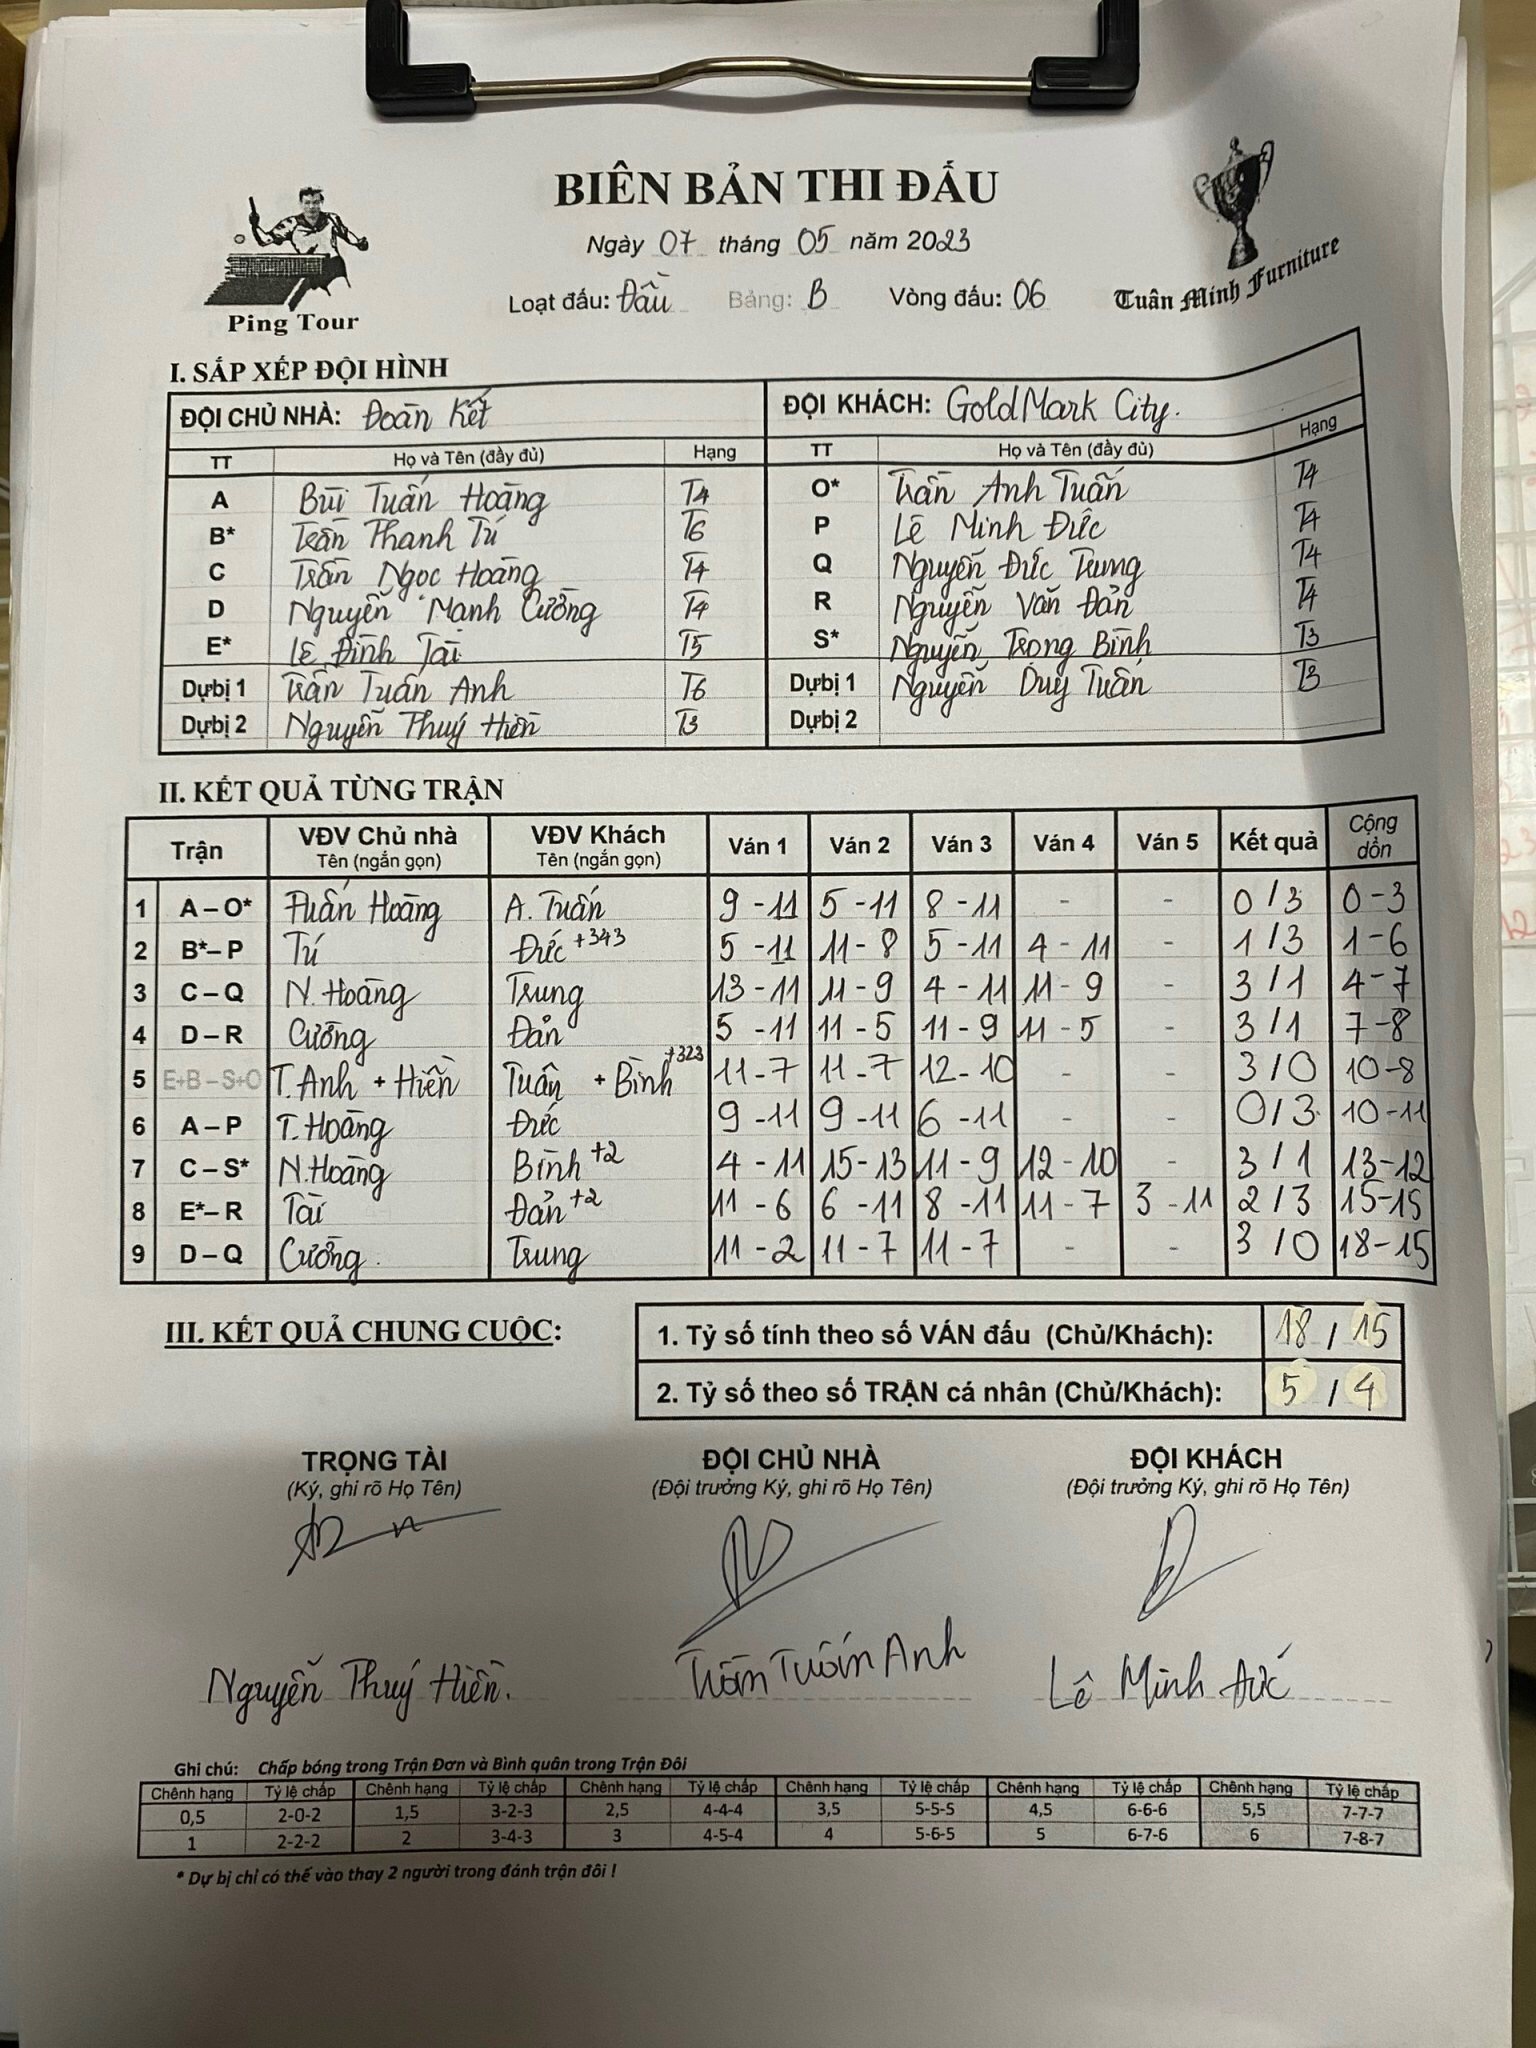 BIÊN BẢN THI ĐẤU
Ngày 07 tháng 05 năm 2023
Loạt đấu: Đầu Bảng: B Vòng đấu: 06
Ping Tour
Tuân Minh Furniture
I. SẮP XẾP ĐỘI HÌNH
ĐỘI CHỦ NHÀ: Đoàn Kết ĐỘI KHÁCH: GoldMark City.
TT Họ và Tên (đầy đủ) Hạng TT Họ và Tên (đầy đủ) Hạng
A Bùi Tuấn Hoàng T4 O* Trần Anh Tuấn T4
B* Trần Thanh Tú T6 P Lê Minh Đức T4
C Trần Ngọc Hoàng T4 Q Nguyễn Đức Trung T4
D Nguyễn Mạnh Cường T4 R Nguyễn Văn Đản T4
E* Lê Đình Tài T5 S* Nguyễn Trọng Bình T3
Dựbị 1 Trần Tuấn Anh T6 Dựbị 1 Nguyễn Duy Tuân T3
Dựbị 2 Nguyễn Thuý Hiền T3 Dựbị 2
II. KẾT QUẢ TỪNG TRẬN
Trận VĐV Chủ nhà VĐV Khách Ván 1 Ván 2 Ván 3 Ván 4 Ván 5 Kết quả Cộng dồn
Tên (ngắn gọn) Tên (ngắn gọn)
1 A – O* Tuấn Hoàng A. Tuấn 9 - 11 5 - 11 8 - 11 - - 0 / 3 0 - 3
2 B* – P Tú Đức +343 5 - 11 11 - 8 5 - 11 4 - 11 - 1 / 3 1 - 6
3 C – Q N. Hoàng Trung 13 - 11 11 - 9 4 - 11 11 - 9 - 3 / 1 4 - 7
4 D – R Cường Đản 5 - 11 11 - 5 11 - 9 11 - 5 - 3 / 1 7 - 8
5 E+B – S+O T. Anh + Hiền Tuân + Bình +323 11 - 7 11 - 7 12 - 10 - - 3 / 0 10 - 8
6 A – P T. Hoàng Đức 9 - 11 9 - 11 6 - 11 - - 0 / 3 10 - 11
7 C – S* N. Hoàng Bình +2 4 - 11 15 - 13 11 - 9 12 - 10 - 3 / 1 13 - 12
8 E* – R Tài Đản +2 11 - 6 6 - 11 8 - 11 11 - 7 3 - 11 2 / 3 15 - 15
9 D – Q Cường. Trung 11 - 2 11 - 7 11 - 7 - - 3 / 0 18 - 15
III. KẾT QUẢ CHUNG CUỘC:
1. Tỷ số tính theo số VÁN đấu (Chủ/Khách): 18 / 15
2. Tỷ số theo số TRẬN cá nhân (Chủ/Khách): 5 / 4
TRỌNG TÀI ĐỘI CHỦ NHÀ ĐỘI KHÁCH
(Ký, ghi rõ Họ Tên) (Đội trưởng Ký, ghi rõ Họ Tên) (Đội trưởng Ký, ghi rõ Họ Tên)
Nguyễn Thuý Hiền. Trần Tuấn Anh Lê Minh Đức
Ghi chú: Chấp bóng trong Trận Đơn và Bình quân trong Trận Đôi
Chênh hạng Tỷ lệ chấp Chênh hạng Tỷ lệ chấp Chênh hạng Tỷ lệ chấp Chênh hạng Tỷ lệ chấp Chênh hạng Tỷ lệ chấp Chênh hạng Tỷ lệ chấp
0,5 2-0-2 1,5 3-2-3 2,5 4-4-4 3,5 5-5-5 4,5 6-6-6 5,5 7-7-7
1 2-2-2 2 3-4-3 3 4-5-4 4 5-6-5 5 6-7-6 6 7-8-7
* Dự bị chỉ có thể vào thay 2 người trong đánh trận đôi !